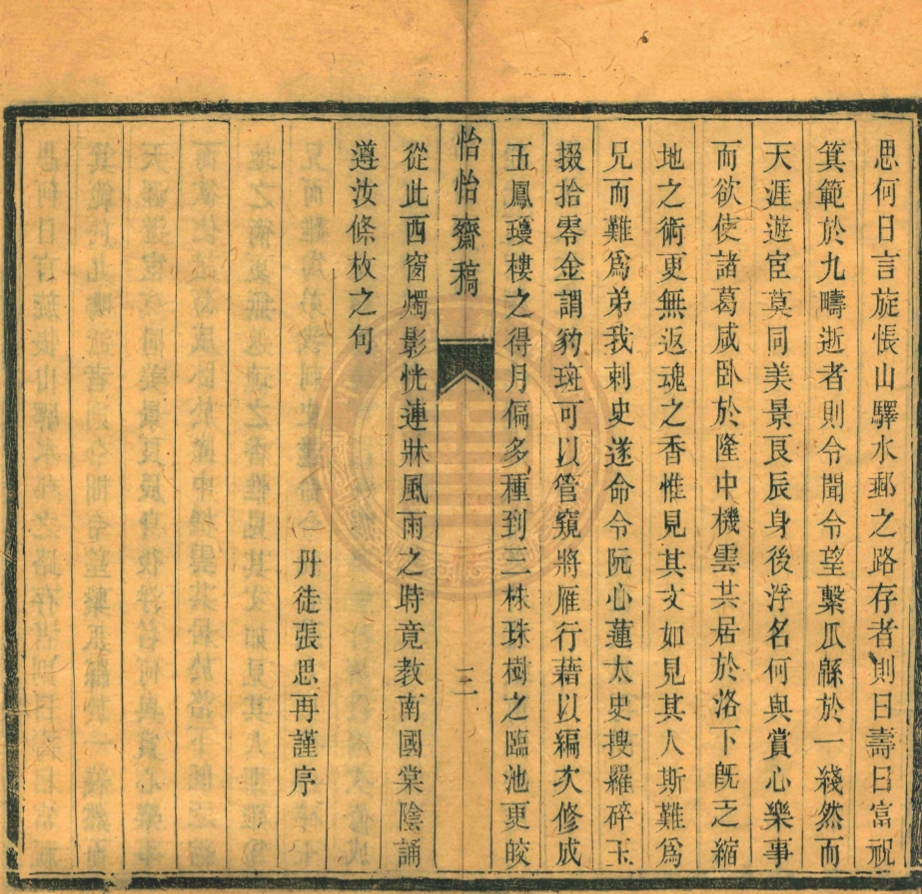 思何日言旋悵山驛水郵之路存者則曰壽曰富祝
箕範於九疇逝者則令聞令望繫瓜緜於一綫然而
天涯遊宦莫同美景良辰身後浮名何與賞心樂事
而欲使諸葛咸卧於隆中機雲共居於洛下旣乏縮
地之術更無返魂之香惟見其文如見其人斯難爲
兄而難爲弟我刺史遂命令阮心蓮太史搜羅碎玉
掇拾零金謂豹斑可以管窺將雁行藉以編次修成
五鳳瓊樓之得月偏多種到三株珠樹之臨池更皎
怡怡齋稿 三
從此西窗燭影恍連牀風雨之時竟教南國棠陰誦
遵汝條枚之句
丹徒張思再謹序